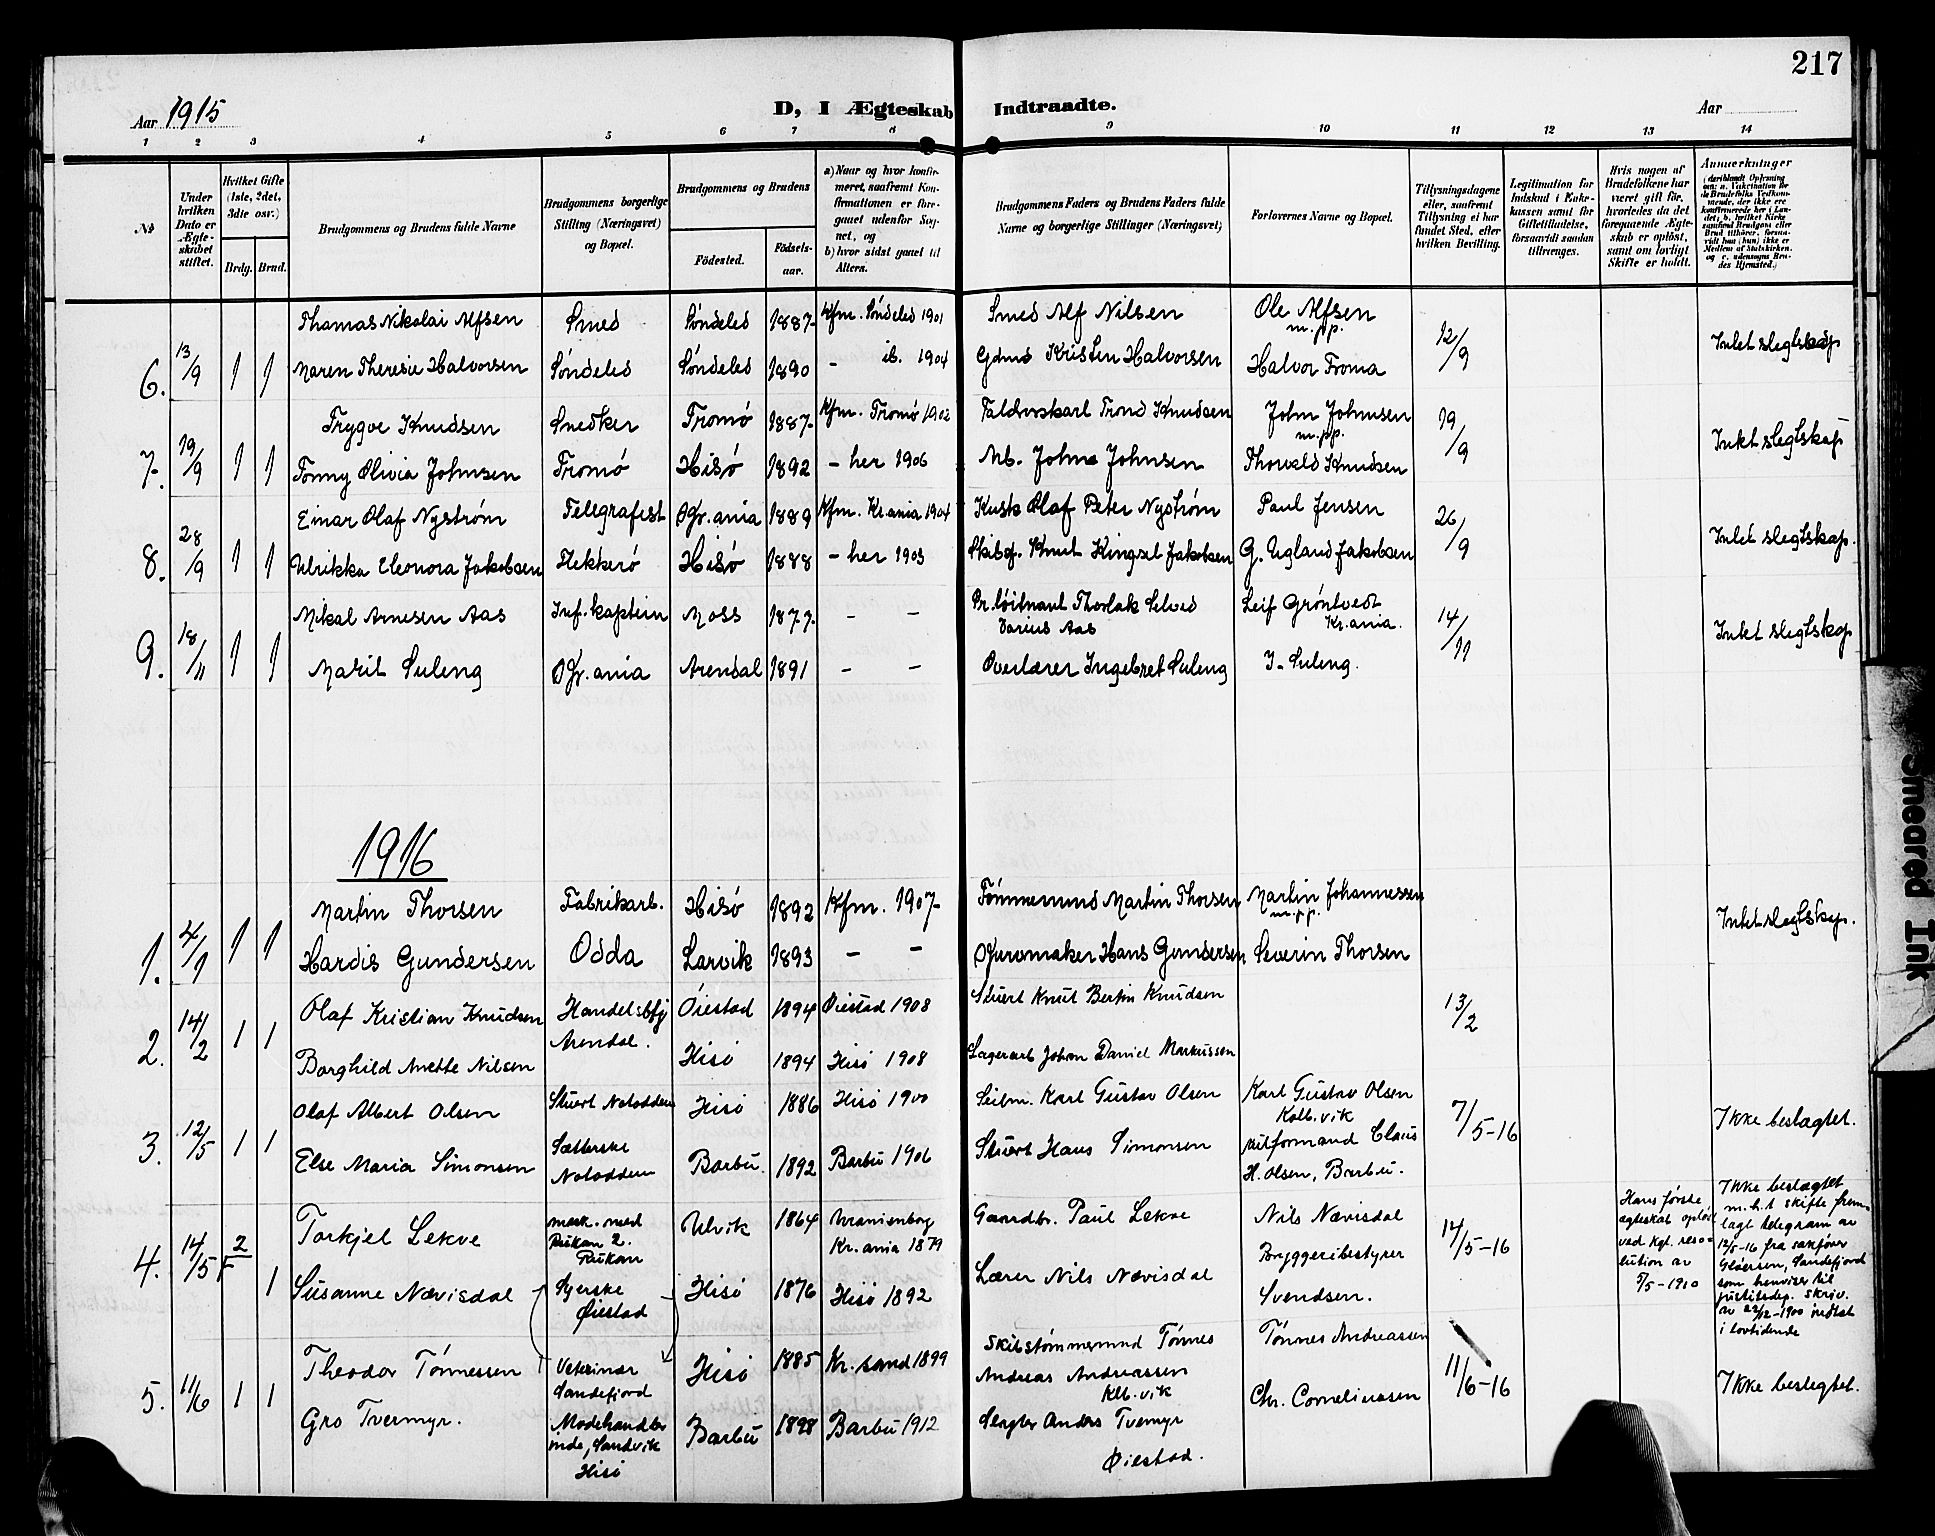 217
Aar 1915
D, I Ægteskab Indtraadte.
Aar
1 2 3 4 5 6 7 8 9 10 11 12 13 14
№
Under hvilken Dato er Ægteskabet stiftet.
Hvilket Gifte (1ste, 2det, 3die osv.)
Brdg. Brud.
Brudgommens og Brudens fulde Navne
Brudgommens borgerlige Stilling (Næringsvei) og Bopæl.
Brudgommens og Brudens
Fødested.
Fødselsaar.
a) Naar og hvor konfirmeret, saafremt Konfirmationen er foregaaet udenfor Sognet, og
b) hvor sidst gaaet til Alters.
Brudgommens Faders og Brudens Faders fulde Navne og borgerlige Stillinger (Næringsvei)
Forlovernes Navne og Bopæl.
Tillysningsdagene eller, saafremt Tillysning ei har fundet Sted, efter hvilken Bevilling.
Legitimation for Indskud i Enkekassen samt for Giftetilladelse, forsaavidt saadan tiltrænges.
Hvis nogen af Brudefolkene har været gift før, hvorledes da det foregaaende Ægteskab er opløst, samt om lovligt Skifte er holdt.
Anmerkninger
Thomas Nikolai Alfsen Smed Søndeled 1887 Kfm. Søndeled 1901 Smed Alf Nilsen Ole Alfsen m.p.p. 12/9 Intet slegtskap
6. 13/9 1 1 Maren Theresie Halvorsen Søndeled Søndeled 1890 - ib. 1904 Gdmd Kristen Halvorsen Halvor Froma
Trygve Knudsen Snedker Tromø 1887 Kfm. Tromø 1902 Trond Knudsen John Johnsen m.p.p. 19/9 Intet slegtskap
7. 19/9 1 1 Tonny Olivia Johnsen Tromø Hisø 1892 - her 1906 Mb. John Johnsen Thorvald Knudsen
Einar Olaf Nystrøm Telegrafist Kr.ania 1889 Kfm. Kr.ania 1904 Kusk Olaf Peter Nystrøm Paul Jensen 26/9 Intet slegtskap.
8. 28/9 1 1 Ulrikka Eleonora Jakobsen Flekkerø Hisø 1888 - her 1903 Skibsf. Knut Jakobsen G. Ugland Jakobsen
Mikal Arnesen Aas Inf. kaptein Moss 1877 - - Pr. løitnant Thorlak Darius Aas Leif Grøntvedt Kr.ania. 14/11 Intet slegtskap
9. 18/11 1 1 Marit Suleng Kr.ania Arendal 1891 - - Overlærer Ingebret Suleng I. Suleng.
1916
Martin Thorsen Fabrikarb. Hisø 1892 Kfm. 1907 Tømmermd Martin Thorsen Martin Johannessen m.p.p. Intet slegtskap.
1. 4/1 1 1 Hardis Gundersen Odda Larvik 1893 - - Kurvmaker Hans Gundersen Severin Thorsen
Olaf Kristian Knudsen Handelsbtj Øiestad 1894 Øiestad 1908 Stuert Knut Bertin Knudsen 13/2
2. 14/2 1 1 Arendal.
Borghild Anette Nilsen Hisø 1894 Hisø 1908 Lagerarb John Daniel Markussen
Olaf Albert Olsen Stuert Notodden Hisø 1886 Hisø 1900 Seilm. Karl Gustav Olsen Karl Gustav Olsen Kolb.vik 7/5-16 Ikke beslægtet.
3. 12/5 1 1 Else Maria Simonsen Sætterske Notodden Barbu. 1892 Barbu 1906 Stuert Hans Simonsen Skilformand Claus H. Olsen, Barbu.
Torkjel Lekve mask. med Rukan 2. Rukan Ulvik 1864 Uranienborg Kr.ania 1879 Gaardbr. Paul Lekve Nils Nævisdal 14/5-16
4. 14/5 2/F 1 Susanne Nævisdal Syerske Øiestad Hisø 1876 Hisø 1892 Lærer Nils Nævisdal Bryggeribestyrer Svendsen.
Hans første ægteskab opløst ved kgl. resolution av 5/5-1910
Ikke beslægtet m.h.t skifte fremlagt telegram av 12/5-16 fra sakfører Gløersen, Sandefjord som henviser til justitsdep. skriv. av 22/12-1900 indtat i lovtidende
Theodor Tønnessen Veterinær Sandefjord Hisø 1885 Kr.sand 1899 Skibstømmermd Tønnes Andreas Andreassen Klb.vik Tønnes Andreassen 11/6-16 Ikke beslegtet.
5. 11/6 1 1 Gro Tvermyr. Modehandlerinde, Sandvik Hisø Barbu 1898 Barbu 1912 Slagter Anders Tvermyr Øiestad. Chr. Corneliussen
Smeared Ink